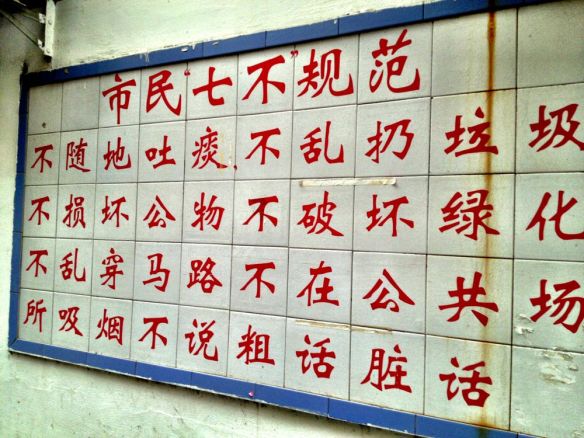 市民“七不”规范
不随地吐痰不乱扔垃圾
不损坏公物不破坏绿化
不乱穿马路不在公共场
所吸烟不说粗话脏话